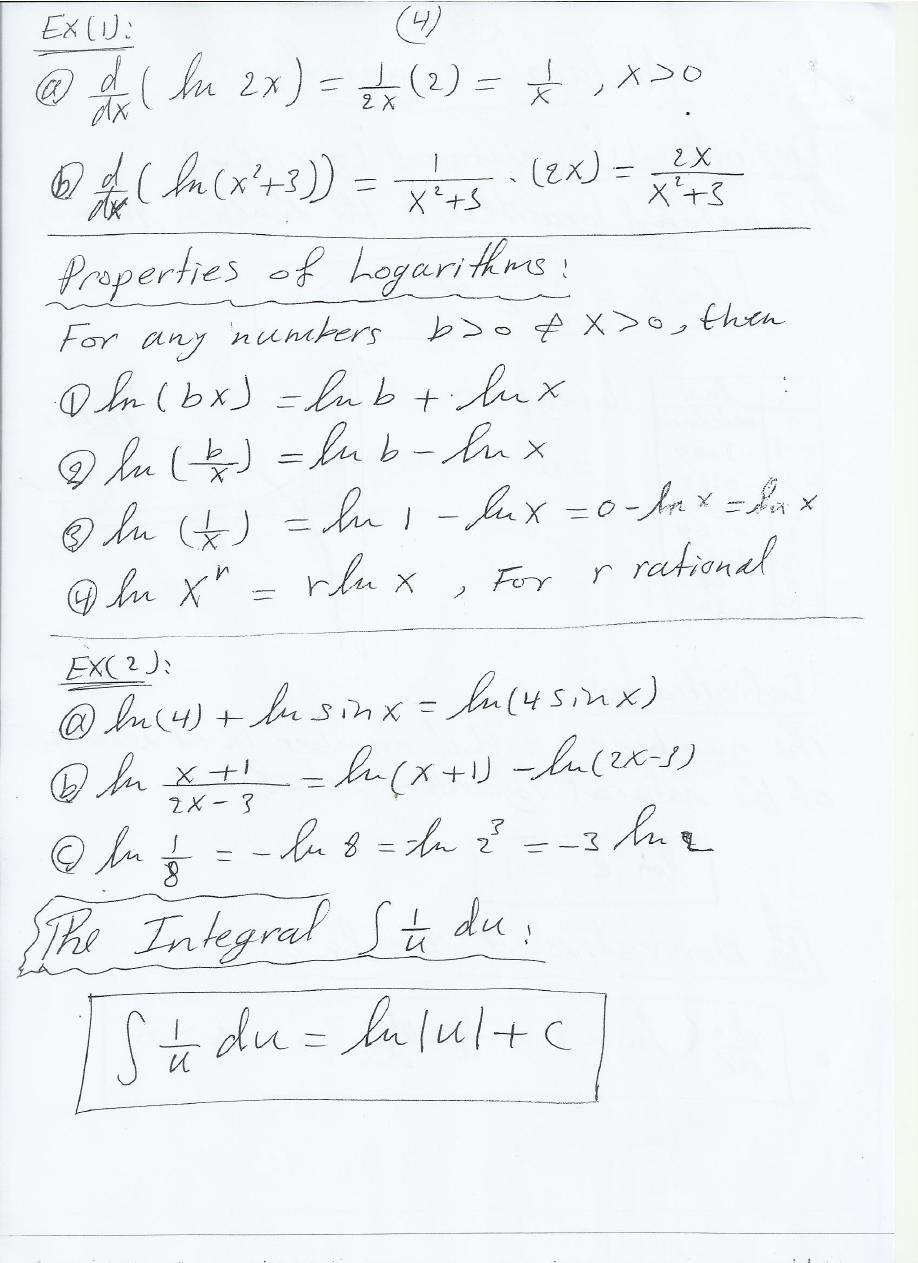 EX(1): (4)
ⓐ d/dx ( ln 2x ) = 1/2x (2) = 1/x , x>0
ⓑ d/dx ( ln(x²+3)) = 1/x²+3 . (2x) = 2x/x²+3
Properties of Logarithms:
For any numbers b>0 & x>0, then
① ln(bx) = ln b + ln x
② ln (b/x) = ln b - ln x
③ ln (1/x) = ln 1 - ln x = 0 - ln x = ln x
④ ln xʳ = r ln x , For r rational
EX(2):
ⓐ ln(4) + ln sin x = ln(4 sin x)
ⓑ ln x+1/2x-3 = ln(x+1) - ln(2x-3)
ⓒ ln 1/8 = - ln 8 = -ln 2³ = -3 ln 2
The Integral ∫ 1/u du:
∫ 1/u du = ln |u| + c